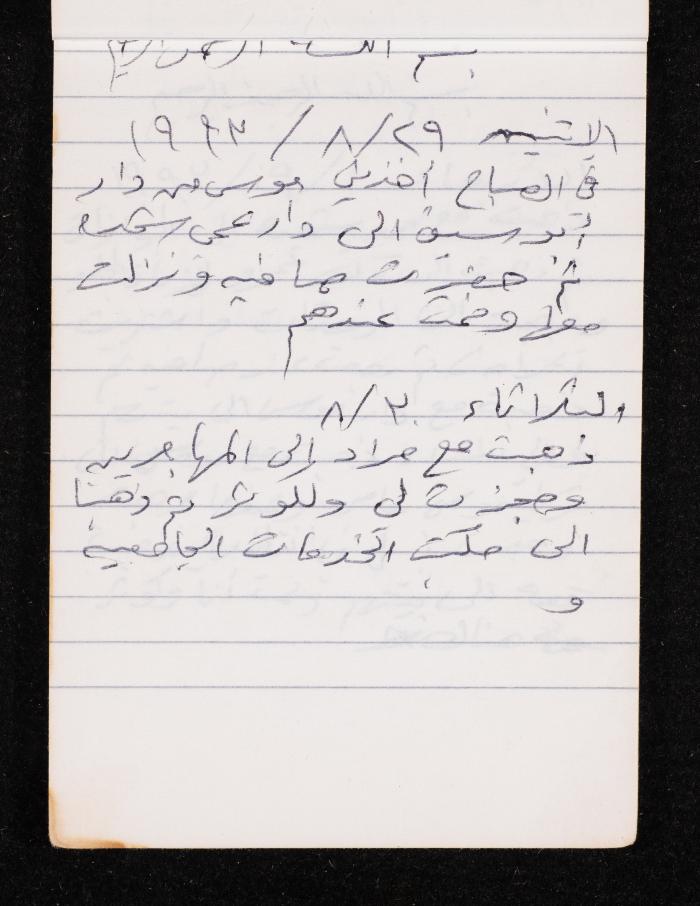 بسم الله الرحمن الرحيم
الاثنين ٢٩/ ٨ / ١٩٩٣
في الصباح أخذني موسى من دار
الى دار عمي
ثم حضرت صافيه ونزلت
معها ونمت عندهم
الثلاثاء ٣٠/ ٨
ذهبت مع مراد إلى المهاجرين
وحجزت لي وللوثر ثم ذهبنا
الى مكتب الخدمات الجامعيه
و